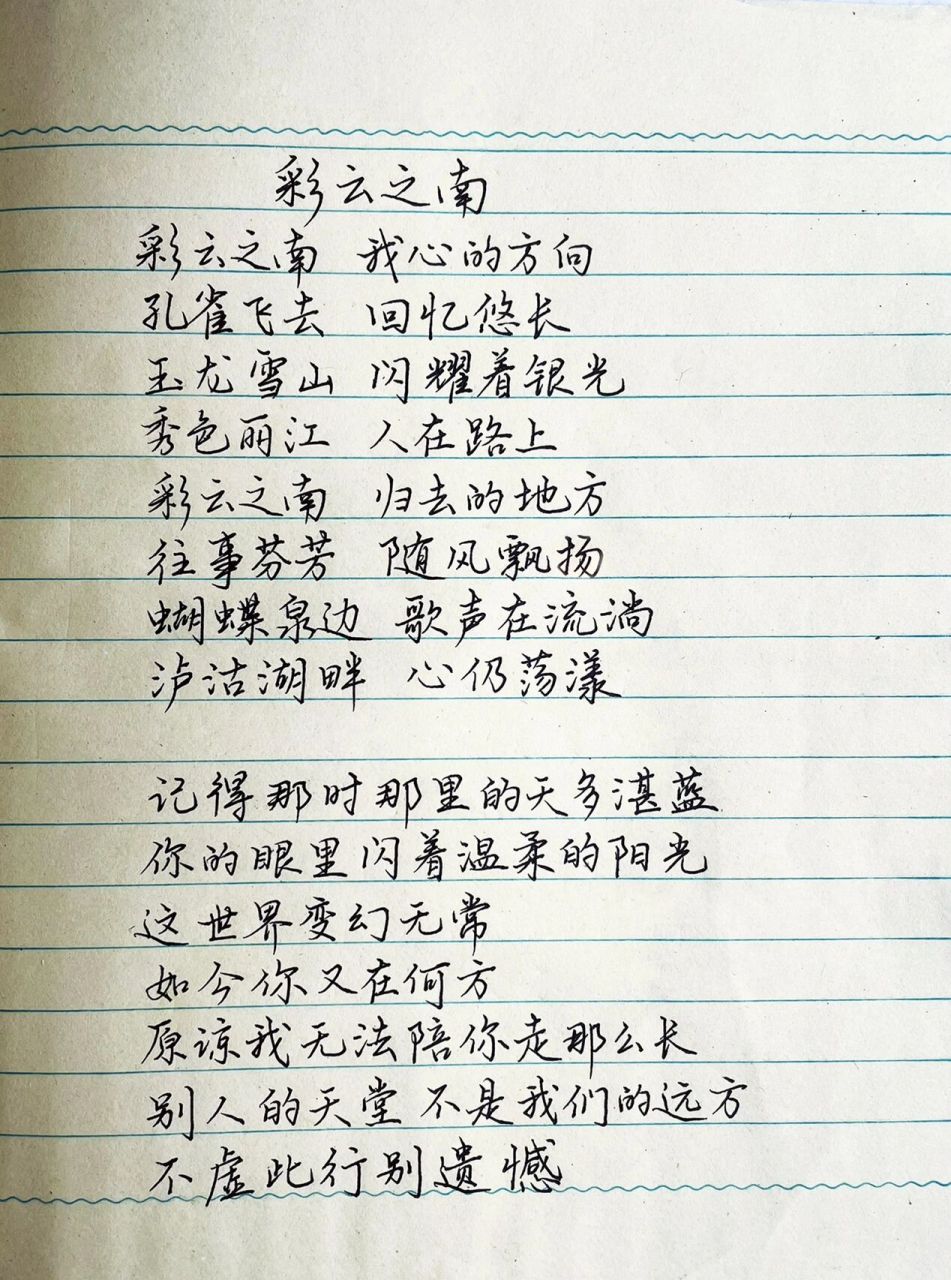 彩云之南
彩云之南 我心的方向
孔雀飞去 回忆悠长
玉龙雪山 闪耀着银光
秀色丽江 人在路上
彩云之南 归去的地方
往事芬芳 随风飘扬
蝴蝶泉边 歌声在流淌
泸沽湖畔 心仍荡漾
记得那时那里的天多湛蓝
你的眼里闪着温柔的阳光
这世界变幻无常
如今你又在何方
原谅我无法陪你走那么长
别人的天堂 不是我们的远方
不虚此行别遗憾